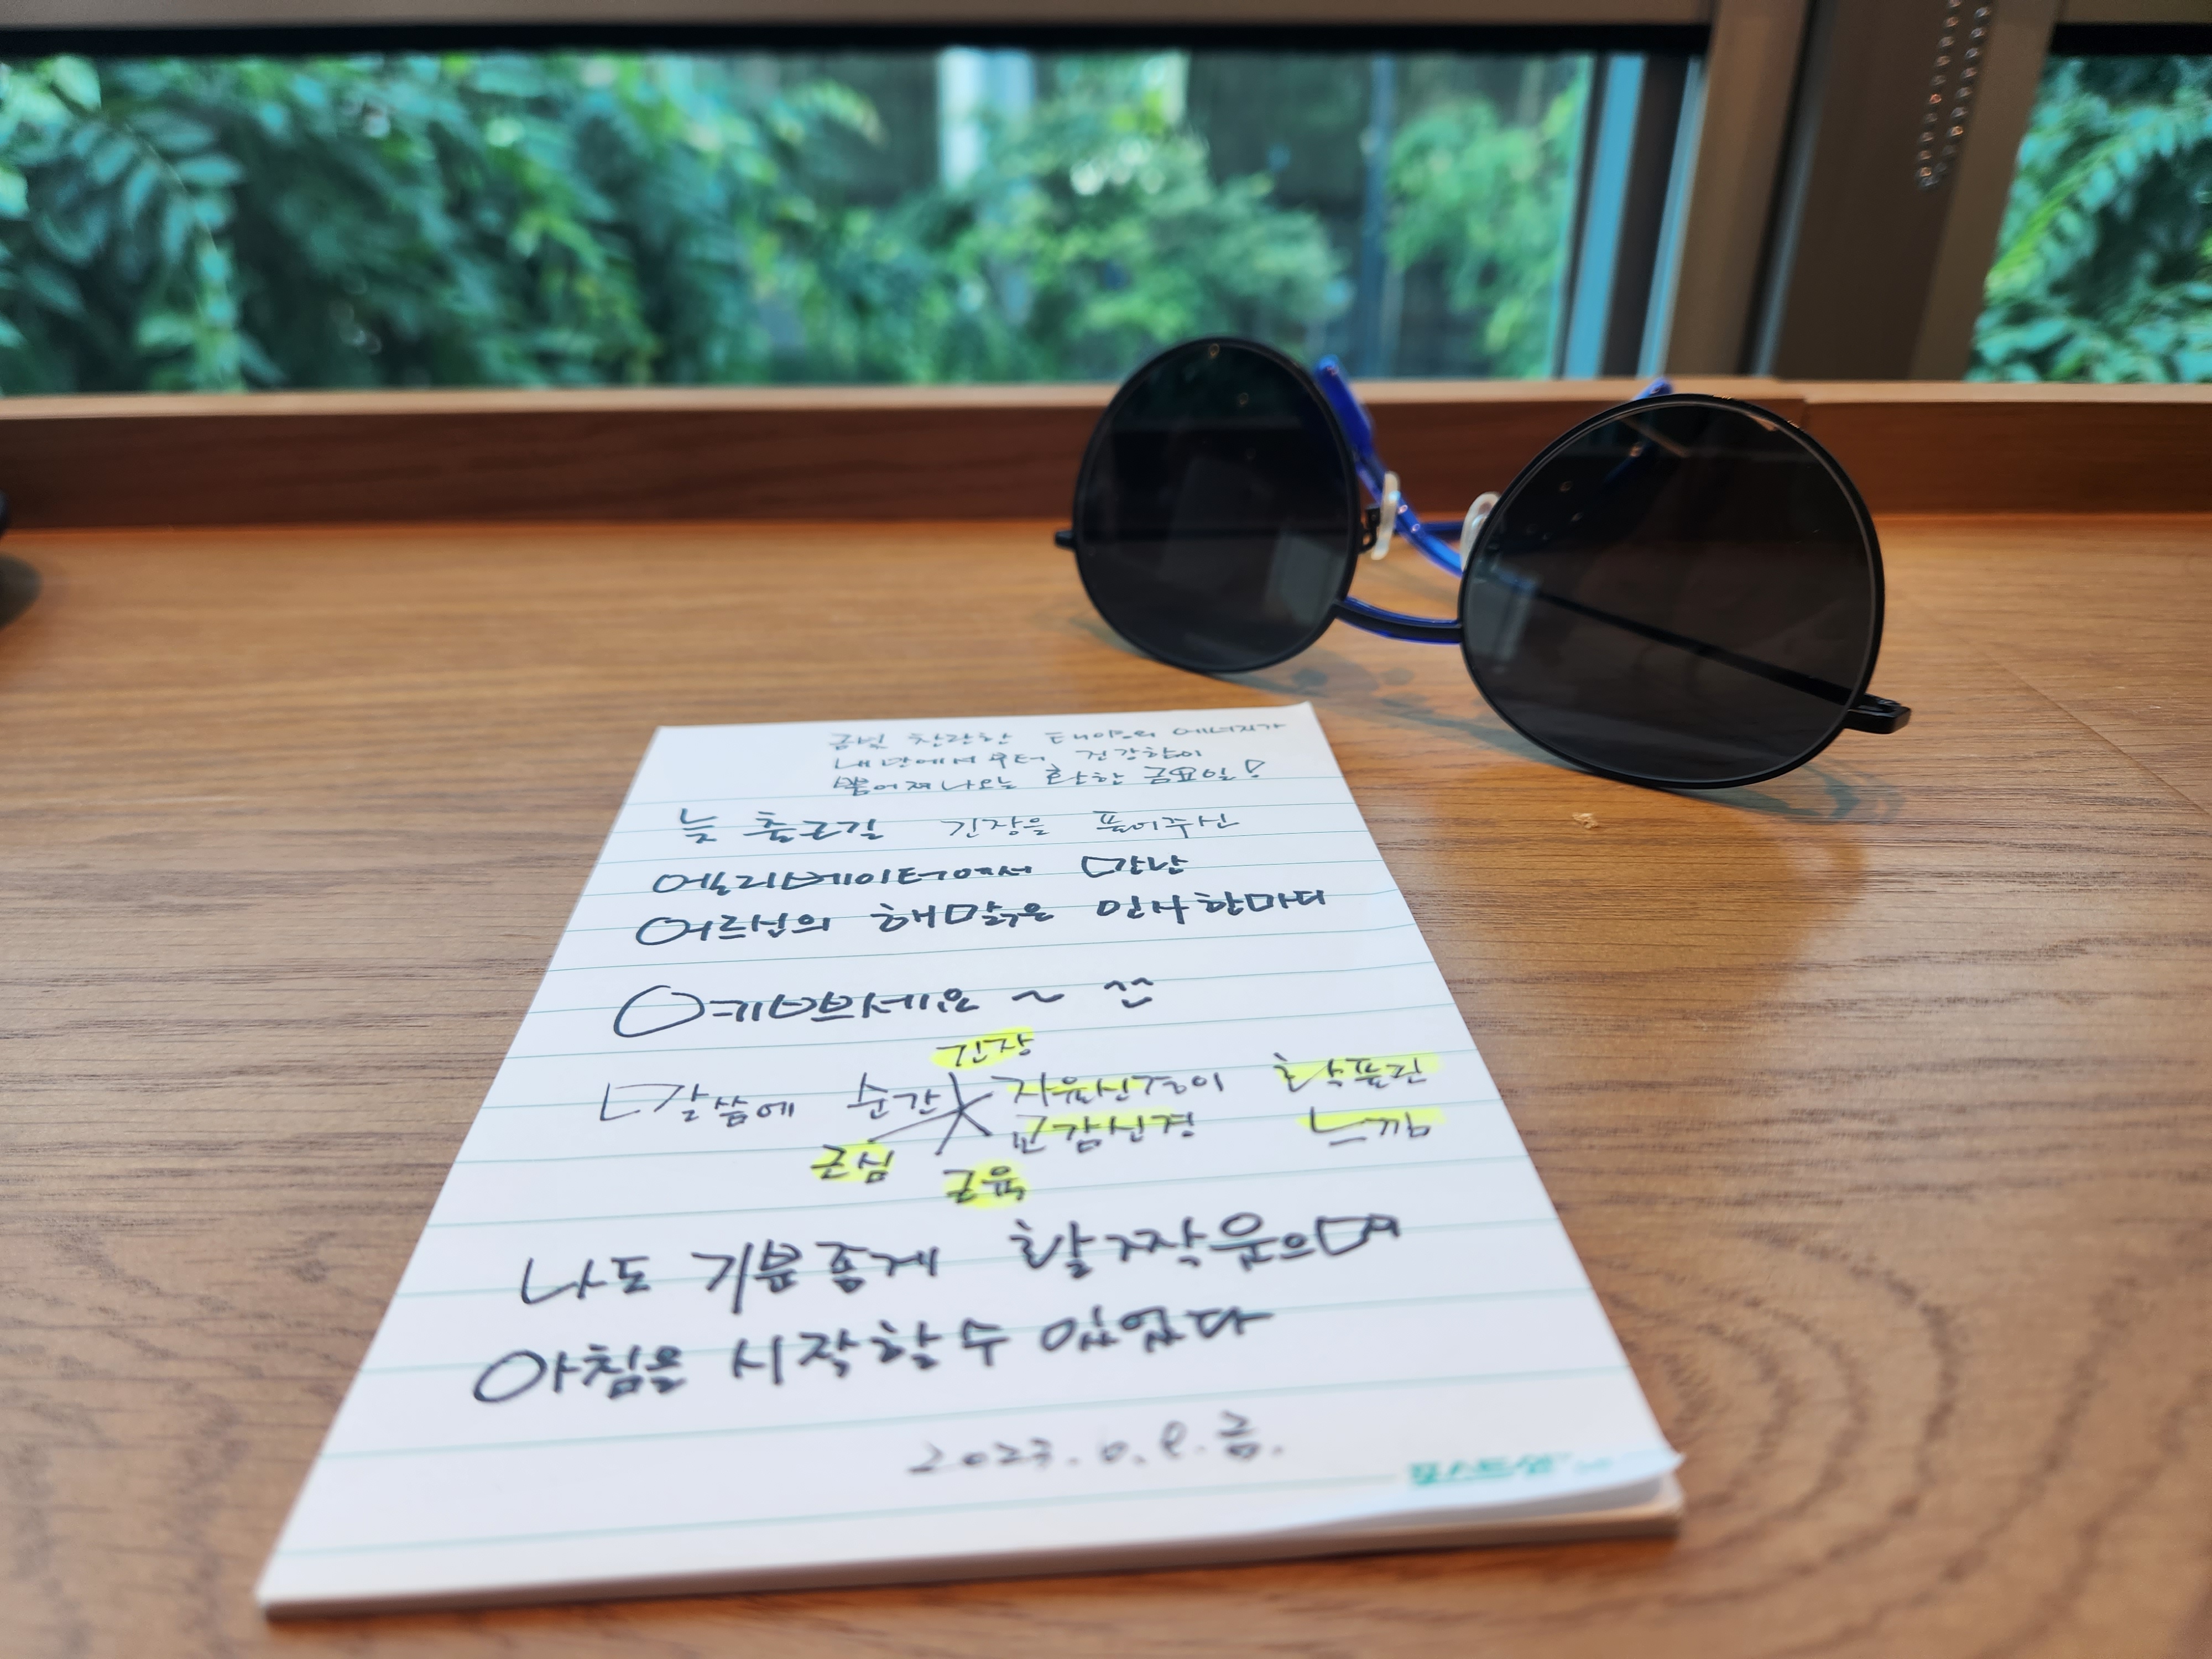 금빛 찬란한 태양의 에너지가
내 안에서부터 건강함이
뿜어져나오는 환한 금요일!
늦 출근길 긴장을 풀어주신
엘리베이터에서 만난
어르신의 해맑은 인사 한마디
예쁘세요 ~ ^^
긴장
말씀에 순간 자율신경이 확 풀린
교감신경 느낌
근심
근육
나도 기분좋게 활짝 웃으며
아침을 시작할 수 있었다
금.